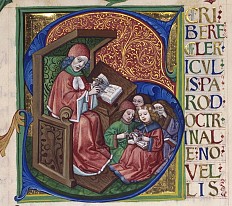 SCRI
BERE
CLER
ICVL
ISPA
ROD
OCTRI
NAL
ENO
VEL
LIS